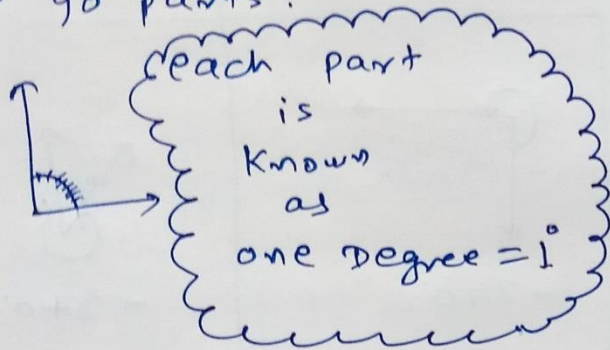 90 parts.
each part
is
Known
as
one Degree = 1°